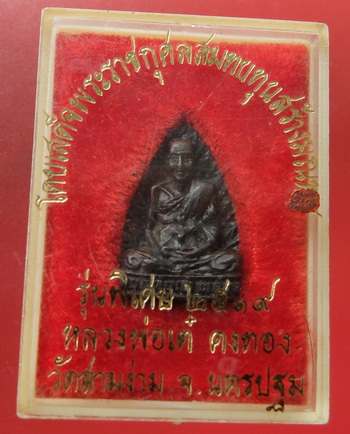 โดยเสด็จพระราชกุศลสมทบทุนสร้าง
รุ่นพิเศษ ๒๕๑๙
หลวงพ่อเต๋ คงทอง
วัดสามง่าม จ. นครปฐม